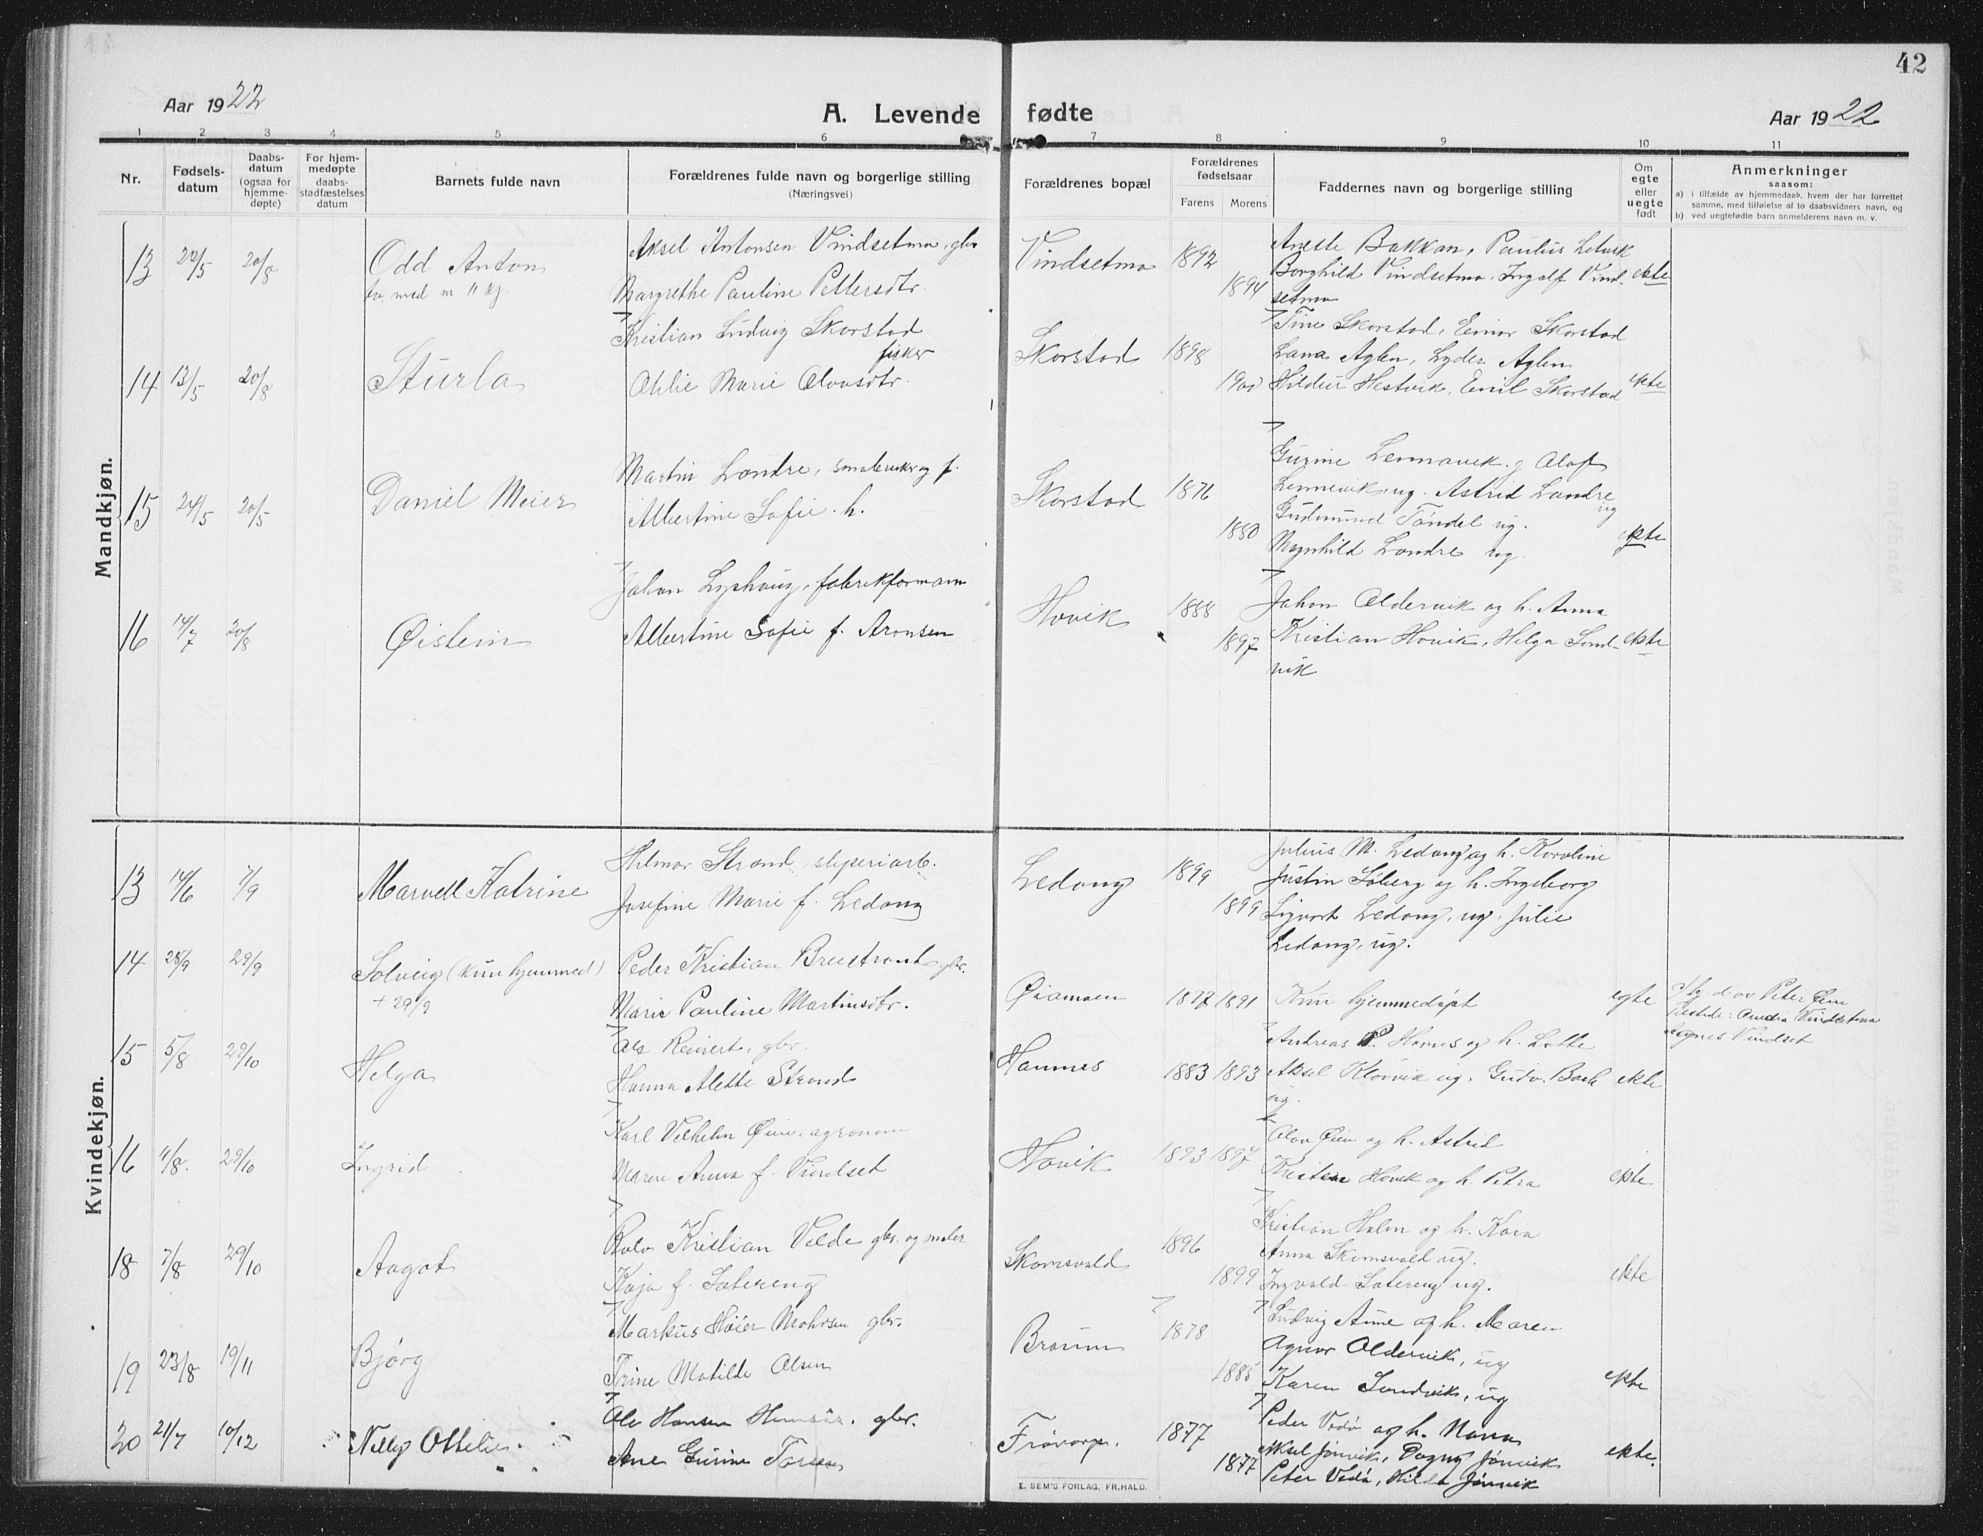 42
Aar 1922
A. Levende fødte
Aar 1922
1 2 3 4 5 6 7 8 9 10 11
Nr.
Fødsels-
datum
Daabs-
datum
(ogsaa for
hjemme-
døpte)
For hjem-
medøpte
daabs-
stadfæstelses
datum
Barnets fulde navn
Forældrenes fulde navn og borgerlige stilling
(Næringsvei)
Forældrenes bopæl
Forældrenes
fødselsaar
Farens Morens
Faddernes navn og borgerlige stilling
Om
egte
eller
uegte
født
Anmerkninger
saasom:
a) i tilfælde av hjemmedaab, hvem der har forrettet
samme, med tilføielse af to daabsvidners navn, og
b) ved uegtefødte barn anmelderens navn m. v.
Mandkjøn.
13 22/5 20/8 Odd Anton
Aksel Antonsen Vindsetmo, gbr
Margrethe Pauline Pettersdtr.
Vindsetmo 1892 1894
Anette Bakkan, Paulus
Borghild Vindsetmo, Ingolf Vind-
setmo
ekte
14 13/5 20/8 Sturla
Kristian Ludvig Skorstad
fisker
Otilie Marie Olausdtr.
Skorstad 1898 1900
Tine Skorstad, Einar Skorstad
Lana Aglen, Lyder Aglen
Hildur Hestvik, Emil Skorstad
ekte
15 24/5 20/5 Daniel Meier
Martin Londre, smabruker og f.
Albertine Sofie h.
Skorstad 1876 1880
Gurine Lennavik g Olaf
Lennevik ug. Astrid Londre
ug
Gudmund Tøndel ug.
Magnhild Londre ug.
ekte
16 14/7 20/8 Øistein
Johan Lyshaug, fabrikformann
Albertine Sofie f. Aronsen
Hovik 1888 1897
Johan Oldervik og h. Anna
Kristian Hovik, Helga Sand-
vik
ekte
Kvindekjøn.
13 14/6 7/9 Marvell Katrine
Hilmar Strand, sliperiarb.
Josefine Marie f. Ledang
Ledang 1899 1899
Julius M. Ledang og h. Karoline
Justin Søberg og h. Ingeborg
Sigvart Ledang, ug. Julie
Ledang, ug.
14 28/9 29/9 Solveig (kun hjemmed)
+ 29/9
Peder Kristian Breistrand gbr.
Marie Pauline Martinsdtr.
Øiamoen 1877 1891
Kun hjemmedøpt
egte
d. av Peter Øien
Vindsetmo
Agnes Vindset
15 5/8 29/10 Helga
Ole Reinert, gbr.
Hanna Alette Strand
Hamnes 1883 1893
Andreas P. Hamnes og h. Lotte
Aksel Klørvik ug. Gudv. Bach
ug.
ekte
16 4/8. 29/10 Ingrid
Karl Vilhelm Øien, agronom
Maren Anna f. Vindset
Hovik 1893 1897
Olav Øien og h. Astrid
Kristian Hovik og h. Petra
ekte
18 7/8 29/10 Aagot
Rolv Kristian Velde gbr. og maler
Kaja f. Sætereng
Skomsvold 1896 1899
Kristian Holm og h. Kaia
Anna Skomsvold ug.
Ingvald Sætereng ug.
ekte
19 23/8 19/11 Bjørg
Markus Høier Mohrsen gbr.
Trine Matilde Olsen
Braum 1878 1885
Ludvig Aune og h. Maren
Agnar Oldervik, ug
Karen Sandvik, ug
ekte
20 21/7 10/12 Nelly Ottelie
Ole Hansen gbr.
Ane Gurine
Frøvarp. 1877 1877
Peder Vedø og h. Nanna
Aksel Jønvik, Dagny Jønvik
Peter Vedø, Hilda Jønvik
ekte.
E. SEM'S FORLAG, FR.HALD.